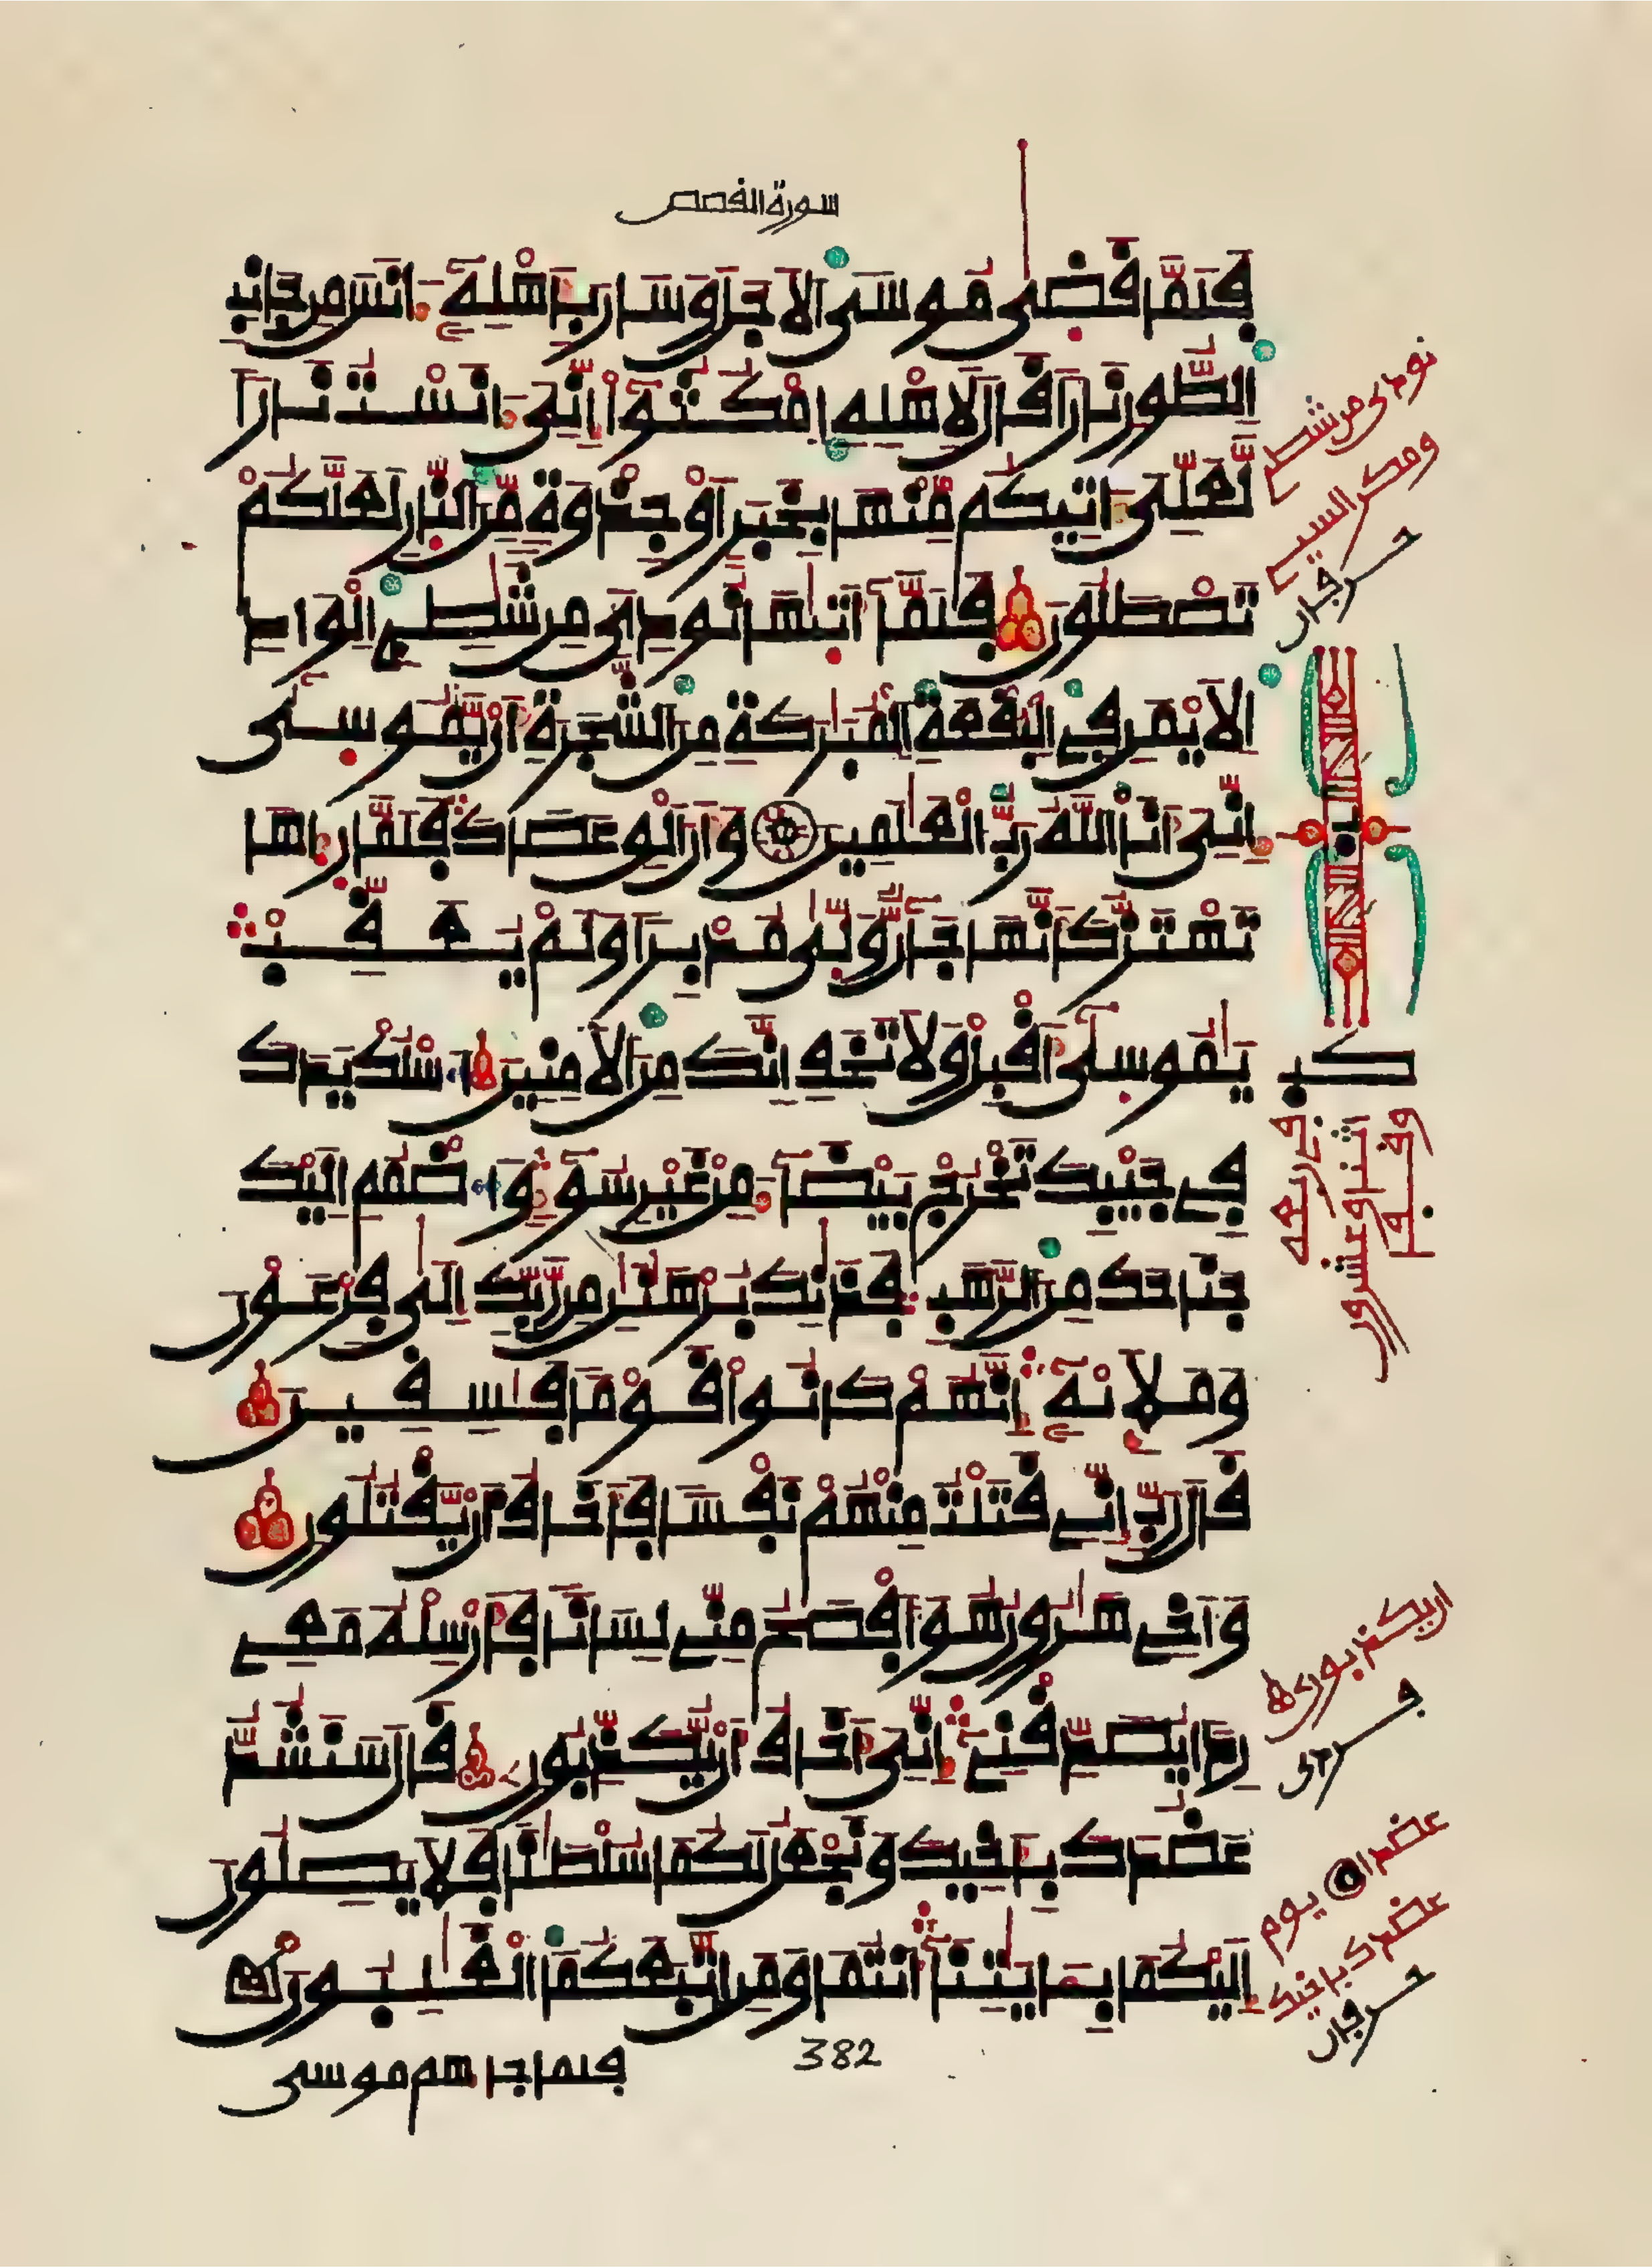 سورة القصص
فَلَمَّا قَضَىٰ مُوسَى الَاجَلَ وَسَارَ بِأَهْلِهِۦٓ ءَانَسَ مِن جَانِبِ
اِ۬لطُّورِ نَارًا قَالَ لِأَهْلِهِ اِ۟مْكُثُوٓاْ إِنِّىَ ءَانَسْتُ نَارًا
لَّعَلِّىَ ءَاتِيكُم مِّنْهَا بِخَبَرٍ اَوْ جِذْوَةٍ مِّنَ اَ۬لنَّارِ لَعَلَّكُمْ
تَصْطَلُونَ فَلَمَّآ أَتَىٰهَا نُودِىَ مِن شَٰطِےِٕ اِ۬لْوَادِ
اِ۬لَايْمَنِ فِے اِ۬لْبُقْعَةِ اِ۬لْمُبَٰرَكَةِ مِنَ اَ۬لشَّجَرَةِ أَنْ يَّٰمُوسَىٰٓ
إِنِّىَ أَنَا اَ۬للَّهُ رَبُّ اُ۬لْعَٰلَمِينَ وَأَنَ اَلْقِ عَصَاكَ فَلَمَّا رَءَاهَا
تَهْتَزُّ كَأَنَّهَا جَآنٌّ وَلَّىٰ مُدْبِرًا وَلَمْ يُعَقِّبْ
يَٰمُوسَىٰٓ أَقْبِلْ وَلَا تَخَفِ اِنَّكَ مِنَ اَ۬لَامِنِينَ اَ۟سْلُكْ يَدَكَ
فِے جَيْبِكَ تَخْرُجْ بَيْضَآءَ مِنْ غَيْرِ سُوٓءٍ وَاضْمُمِ اِلَيْكَ
جَنَاحَكَ مِنَ اَ۬لرَّهَبِ فَذَٰنِكَ بُرْهَٰنَٰنِ مِن رَّبِّكَ إِلَىٰ فِرْعَوْنَ
وَمَلَإِيْهِۦٓ إِنَّهُمْ كَانُواْ قَوْمًا فَٰسِقِينَ
قَالَ رَبِّ إِنِّے قَتَلْتُ مِنْهُمْ نَفْسًا فَأَخَافُ أَنْ يَّقْتُلُونِ
وَأَخِے هَٰرُونُ هُوَ أَفْصَحُ مِنِّے لِسَانًا فَأَرْسِلْهُ مَعِے
رِدًا يُصَدِّقْنِےٓ إِنِّىَ أَخَافُ أَنْ يُّكَذِّبُونِ قَالَ سَنَشُدُّ
عَضُدَكَ بِأَخِيكَ وَنَجْعَلُ لَكُمَا سُلْطَٰنًا فَلَا يَصِلُونَ
إِلَيْكُمَا بِـَٔايَٰتِنَآ أَنتُمَا وَمَنِ اِ۪تَّبَعَكُمَا اَ۬لْغَٰلِبُونَ
382
فلما جاءهم موسى
نودى من شطے
ومكر السيے
حرفان
كب
اثنا وعشرون
ان يكذبون
عضدا يوم
عضدك باخيك
حرفان